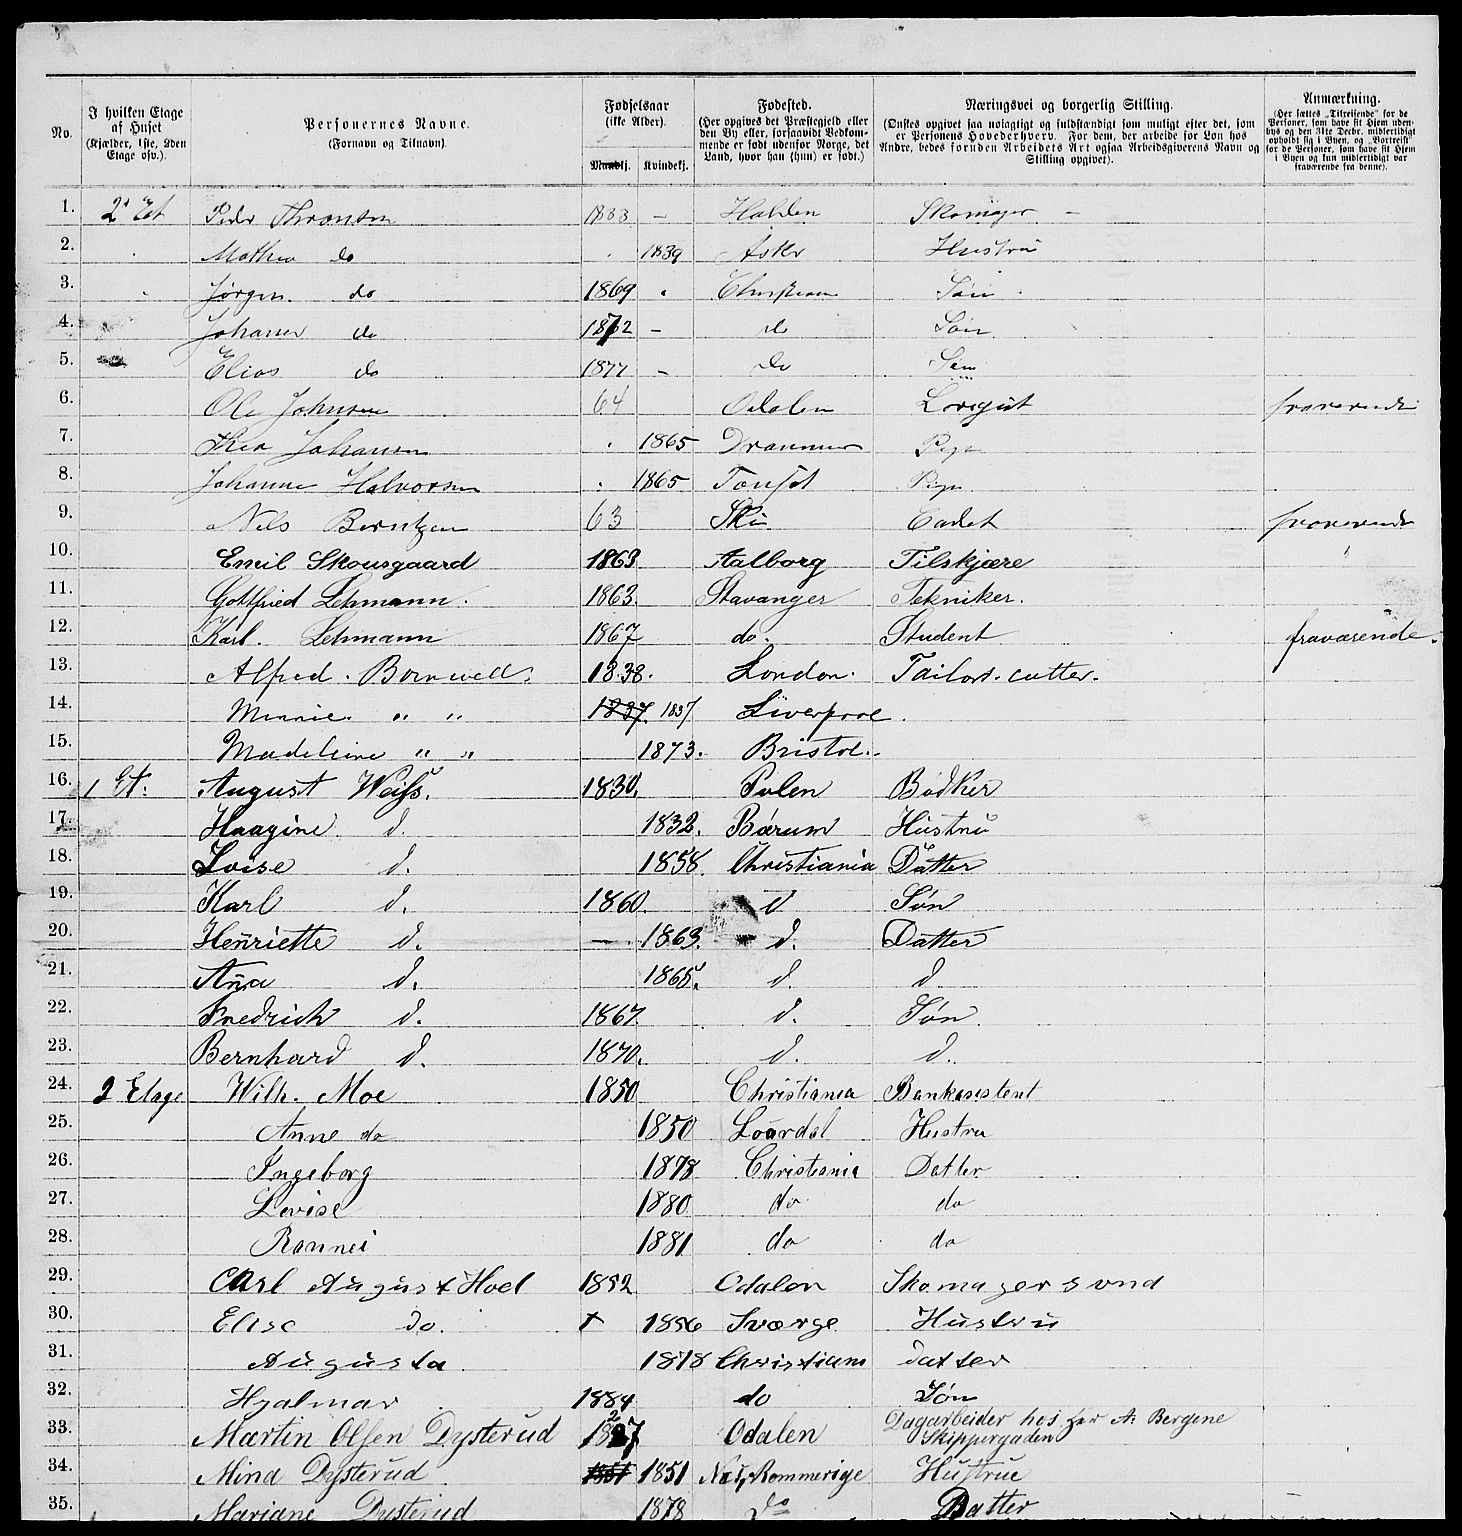 No. I hvilken Etage af Huset (Kjælder, 1ste, 2den Etage osv.). Personernes Navne. (Fornavn og Tilnavn). Fødselsaar (ikke Alder). Mandkj. Kvindekj. Fødested. (Her opgives det Præstegjeld eller den By eller, forsaavidt Vedkommende er født udenfor Norge, det Land, hvor han (hun) er født.) Næringsvei og borgerlig Stilling. (Ønskes opgivet saa nøiagtigt og fuldstændigt som muligt efter det, som er Personens Hovederhverv. For dem, der arbeide for Løn hos Andre, bedes foruden Arbeidets Art ogsaa Arbeidsgiverens Navn og Stilling opgivet). Anmærkning. (Her sættes „Tilreisende" for de Personer, som have sit Hjem udenbys og den 31te Decbr. midlertidigt opholdt sig i Byen, og „Bortreist" for de Personer, som have sit Hjem i Byen og kun midlertidigt var fraværende fra denne).
1. 2' Et Peder Thronsen 1833 – Halden Skomager –
2. Mathea do 1839 Asker Hustru
3. Jørgen do 1869 Christiania Søn
4. Johannes do 1872 – do Søn
5. Elias do 1877 – do Søn
6. Ole Johnsen 64 Odalen fraværende
7. Johansen 1865 Drammen Pige
8. Johanne Halvorsen 1865 Tonset Pige
9. Nils Berntzen 63 Ski Cadet fraværende
10. Emil Skousgaard 1863 Aalborg Tilskjære "
11. Gottfried Lehmann. 1863. Stavanger Tekniker.
12. Karl. Lehmann 1867 do. Student fraværende.
13. Alfred. Bornwell. 1838. London. Tailor. cutter.
14. Minnie. " " 1837 1837 Liverpool.
15. Madeleine " " 1873. Bristol.
16. 1 Et. August Weiss. 1830. Polen Bødker
17. Haagine d. 1832. Bærum Hustru
18. Lovise d. 1858. Christiania Datter
19. Karl d. 1860. d Søn
20. Henriette d. — 1863. d. Datter
21. Anna d. 1865. d. d
22. Fredrich d. 1867. d. Søn
23. Bernhard d. 1870. d. d.
24. 2 Etage Wilh. Moe 1850 Christiania Bankasistent
25. Anne do 1850 Laardal Hustru
26. Ingeborg 1878 Christiania Datter
27. Lovise 1880 do do
28. Rannei 1881 do do
29. Carl August Hoel 1852 Odalen Skomagersvend
30. Elise do. 1856 Sværge Hustru
31. Augusta 1878 Christiania datter
32. Hjalmar 1884 do Søn
33. Martin Olsen Dysterud 1827 Odalen Dagarbeider hos Her A. Bergene
Skippergaden
34. Mina Dysterud 1851 1851 Nes, Rommerige Hustrue
35. Mariane Dysterud 1878 do Datter